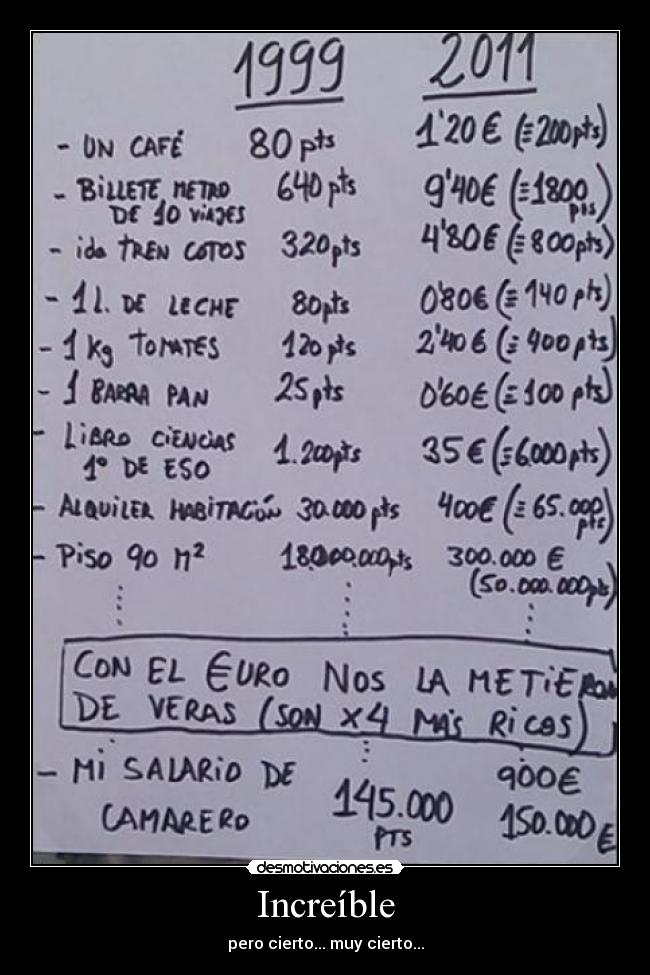 1999 2011
- UN CAFÉ 80 pts 1'20 € (≡ 200 pts)
- BILLETE METRO 640 pts 9'40€ (≡1800
DE 10 VIAJES pts)
- ida TREN COTOS 320 pts 4'80€ (≡ 800 pts)
- 1 l. DE LECHE 80pts 0'80€ (≡ 140 pts)
- 1 Kg TOMATES 120 pts 2'40€ (≡ 400 pts)
- 1 BARRA PAN 25 pts 0'60€ (≡ 100 pts)
- LIBRO CIENCIAS 1.200pts 35€ (≡6.000 pts)
1º DE ESO
- ALQUILER HABITACIÓN 30.000 pts 400€ (≡ 65.000
pts)
- PISO 90 M² 18.000.000pts 300.000 €
(50.000.000pts)
CON EL €URO NOS LA METIERON
DE VERAS (SON X4 MÁS RICOS)
- MI SALARIO DE 900€
CAMARERO 145.000 150.000€
PTS
desmotivaciones.es
Increíble
pero cierto... muy cierto...